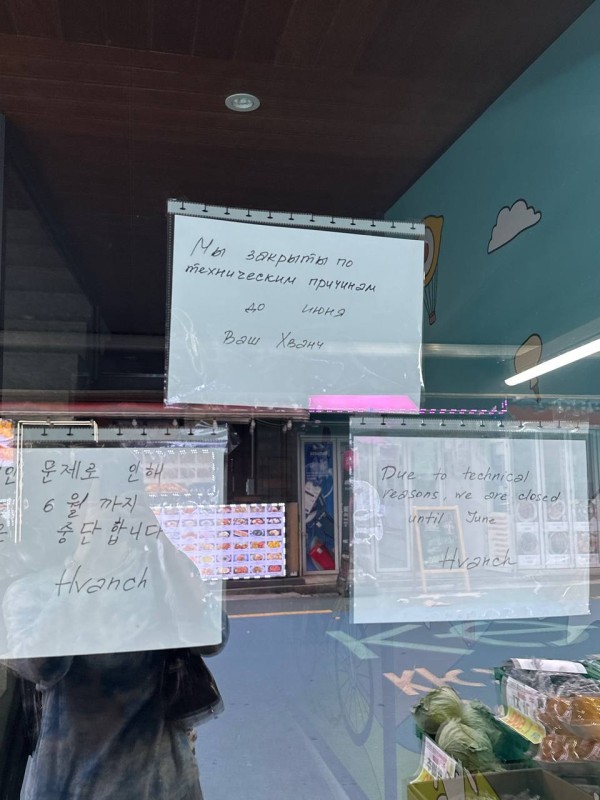 Мы закрыты по
техническим причинам
до июня
Ваш Хванч
인 문제로 인해
6월 까지
은 중단합니다
Hvanch
Due to technical
reasons, we are closed
until June
Hvanch